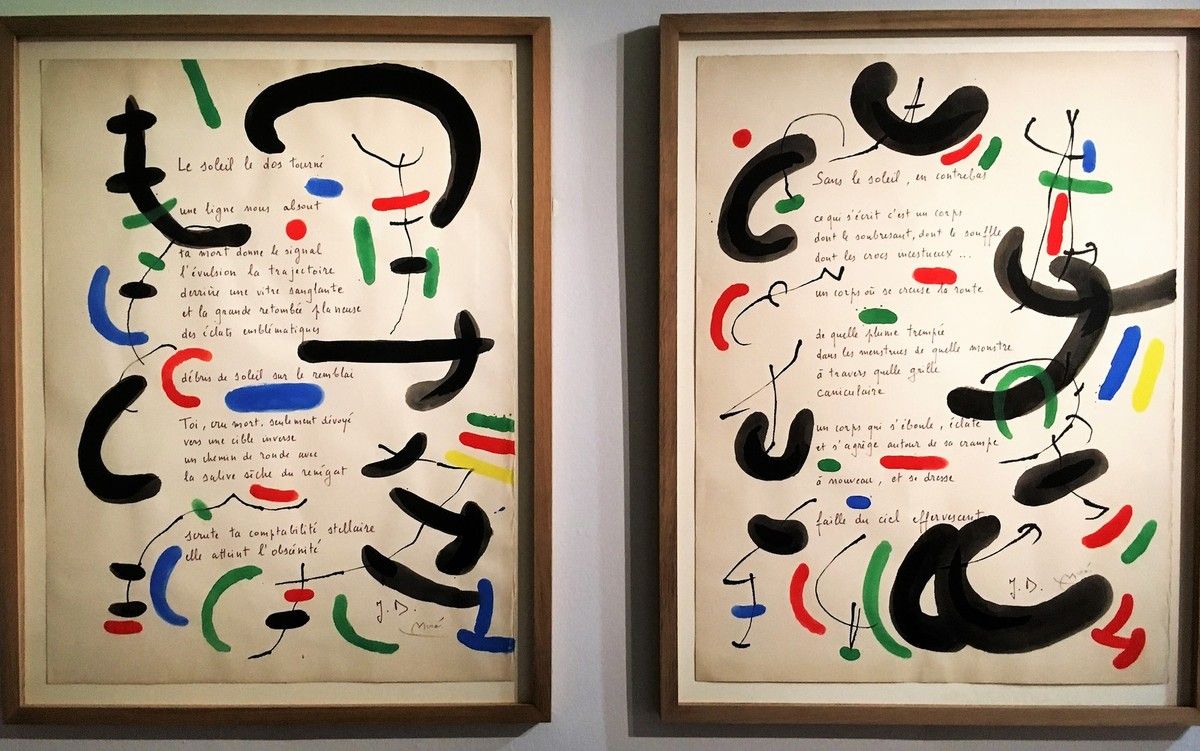 Le soleil le dos tourné
une ligne nous absout
ta mort donne le signal
l'évulsion la trajectoire
derrière une vitre sanglante
et la grande retombée planeuse
des éclats emblématiques
débris de soleil sur le remblai
Toi, cru mort, seulement dévoyé
vers une cible inverse
un chemin de ronde avec
la salive sèche du renégat
scrute ta comptabilité stellaire
elle atteint l'obscénité
J. D.
Miró
Sans le soleil, en contrebas
ce qui s'écrit c'est un corps
dont le soubresaut, dont le souffle
dont les crocs incestueux ...
un corps où se creuse la route
de quelle plume trempée
dans les menstrues de quelle monstre
à travers quelle grille
caniculaire
un corps qui s'éboule, éclate
et s'agrège autour de sa crampe
à nouveau, et se dresse
faille du ciel effervescent
J. D.
Miró